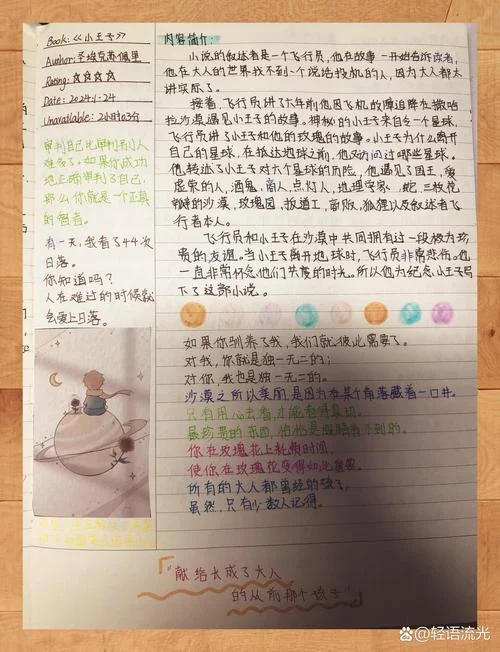 Book:《小王子》
Author:圣埃克苏佩里
Rating:☆☆☆☆
Date:2024.1.24
Unavailable:2小时03分
审判自己比审判别人
难多了。如果你成功
地正确审判了自己,
那么你就是一个正真
的智者。
有一天,我看了44次
日落。
你知道吗?
人在难过的时候就
会爱上日落。
内容简介:
小说的叙述者是一个飞行员,他在故事一开始告诉读者,
他在大人的世界找不到一个说话投机的人,因为大都太
讲实际了。
接着,飞行员讲了六年前他因飞机故障迫降在撒哈
拉沙漠遇见小王子的故事。神秘的小王子来自另一个星球,
飞行员讲了小王子和他的玫瑰的故事。小王子为什么离开
自己的星球,在抵达地球之前,他又访问过哪些星球。
他转达了小王子对六个星球的历险,他遇见了国王,爱
虚荣的人,酒鬼,商人,点灯人,地理学家,蛇,三枚花
瓣的沙漠,玫瑰园,扳道工,商贩,狐狸以及叙述者飞
行者本人。
飞行员和小王子在沙漠中共同拥有过一段极为珍
贵的友谊。当小王子离开地球时,飞行员非常悲伤。他一
直非常怀念他们共度的时光。所以他为纪念小王子写
下了这部小说。
如果你驯养了我,我们就彼此需要了。
对我,你就是独一无二的;
对你,我也是独一无二的。
沙漠之所以美丽,是因为在某个角落藏着一口井。
只有用心去看,才能看得真切。
最珍贵的东西,
你在玫瑰花上耗费时间,
使你在玫瑰花变得如此重要。
所有的大人都曾经的孩子,
虽然,只有少数人记得。
"献给长成了大人
的从前那个孩子"
百家号/轻语流光